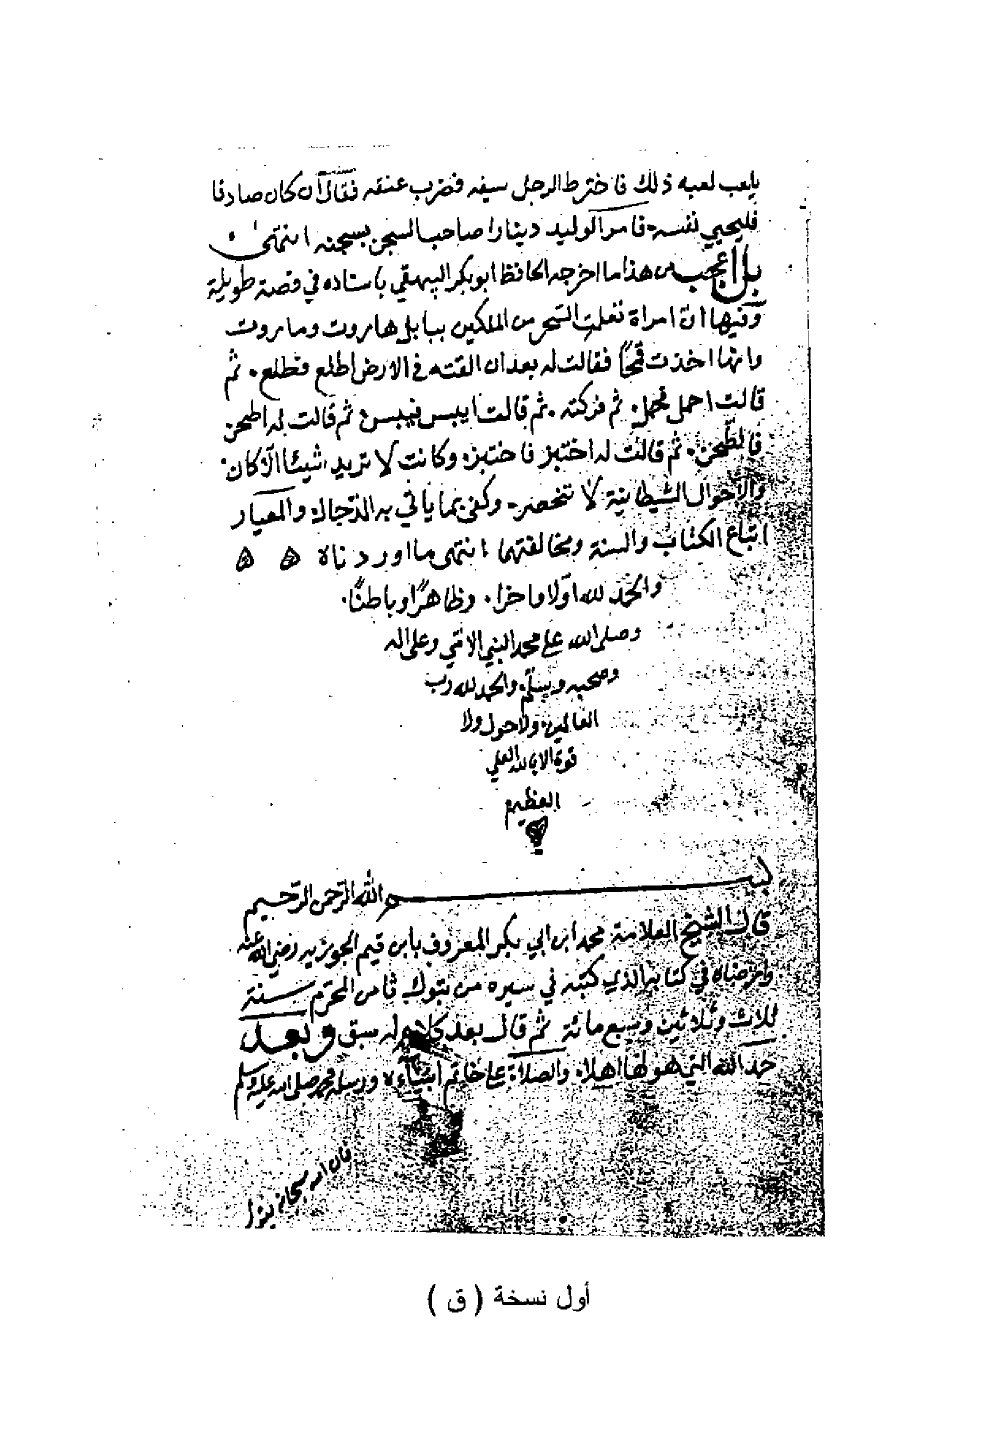 يلعب لعبه ذلك فاخترط الرجل سيفه فضرب عنقه فقال ان كان صادقا
فليحيي نفسه. فامر الوليد دينارا صاحب السجن بسجنه انتهى
بل اعجب من هذا ما اخرجه الحافظ ابو بكر البيهقي باسناده في قصة طويلة
وفيها ان امراة تعلمت السحر من الملكين ببابل هاروت وماروت
وانها اخذت قمحًا فقالت له بعد ان القته في الارض اطلع فطلع. ثم
قالت احمل فحمل. ثم فركته. ثم قالت ايبس فيبس ثم قالت له اطحن
فانطحن. ثم قالت له اختبز فاختبز. وكانت لا تريد شيئا الا كان
والاحوال الشيطانية لا تنحصر. وكفى بما ياتي به الدجال. والمعيار
اتباع الكتاب والسنة ومخالفتهما انتهى ما اوردناه
والحمد لله اولا واخرا. وظاهرًا وباطنًا.
وصلى الله على محمد النبي الامي وعلى اله
وصحبه وسلم. والحمد لله رب
العالمين. ولا حول ولا
قوة الا بالله العلي
العظيم
بسم الله الرحمن الرحيم
قال الشيخ العلامة محمد ابن ابي بكر المعروف بابن قيم الجوزيه رضي الله عنه
وارضاه في كتابه الذي كتبه في سيره من تبوك ثامن المحرم سنة
ثلاث وثلاثين وسبع مائة ثم قال بعد كلام له سبق وبعد
حمد الله التي هو لها اهلا. والصلاة على خاتم انبياءه ورسله محمد صلى الله عليه وسلم
فان الله سبحانه يقول
أول نسخة ( ق )